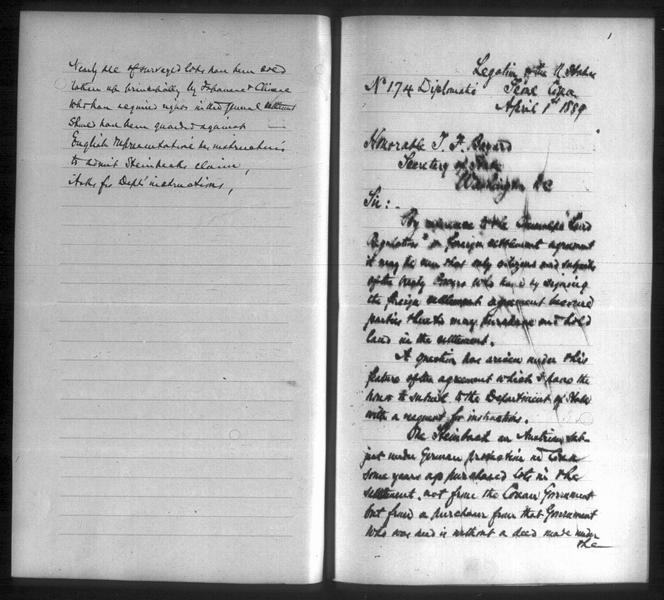 Nearly all of surveyed lots have been sold
taken up principally by Japanese & Chinese
who have required rights in the general settlement
Should have been guarded against
English representative has instructions
to admit Steinbecks claim,
Asks for Dept' instructions,
1
Legation of the U States
No 174 Diplomatic Seoul Corea
April 1st 1889
Honorable T. F. Bayard
Secretary of State
Washington DC
Sir:
By reference to the Chemulpo "Land
Regulations" or foreign settlement agreement
it may be seen that only citizens and subjects
of the treaty Powers who have by signing
the foreign settlement agreement become
parties thereto may purchase and hold
land in the settlement.
A question has arisen under this
feature of the agreement which I have the
honor to submit to the Department of State
with a request for instructions.
One Steinbeck an Austrian sub-
ject under German protection in Corea
some years ago purchased lots in the
settlement, not from the Corean Government
but from a purchaser from that Government
who was seized without a deed made under
the